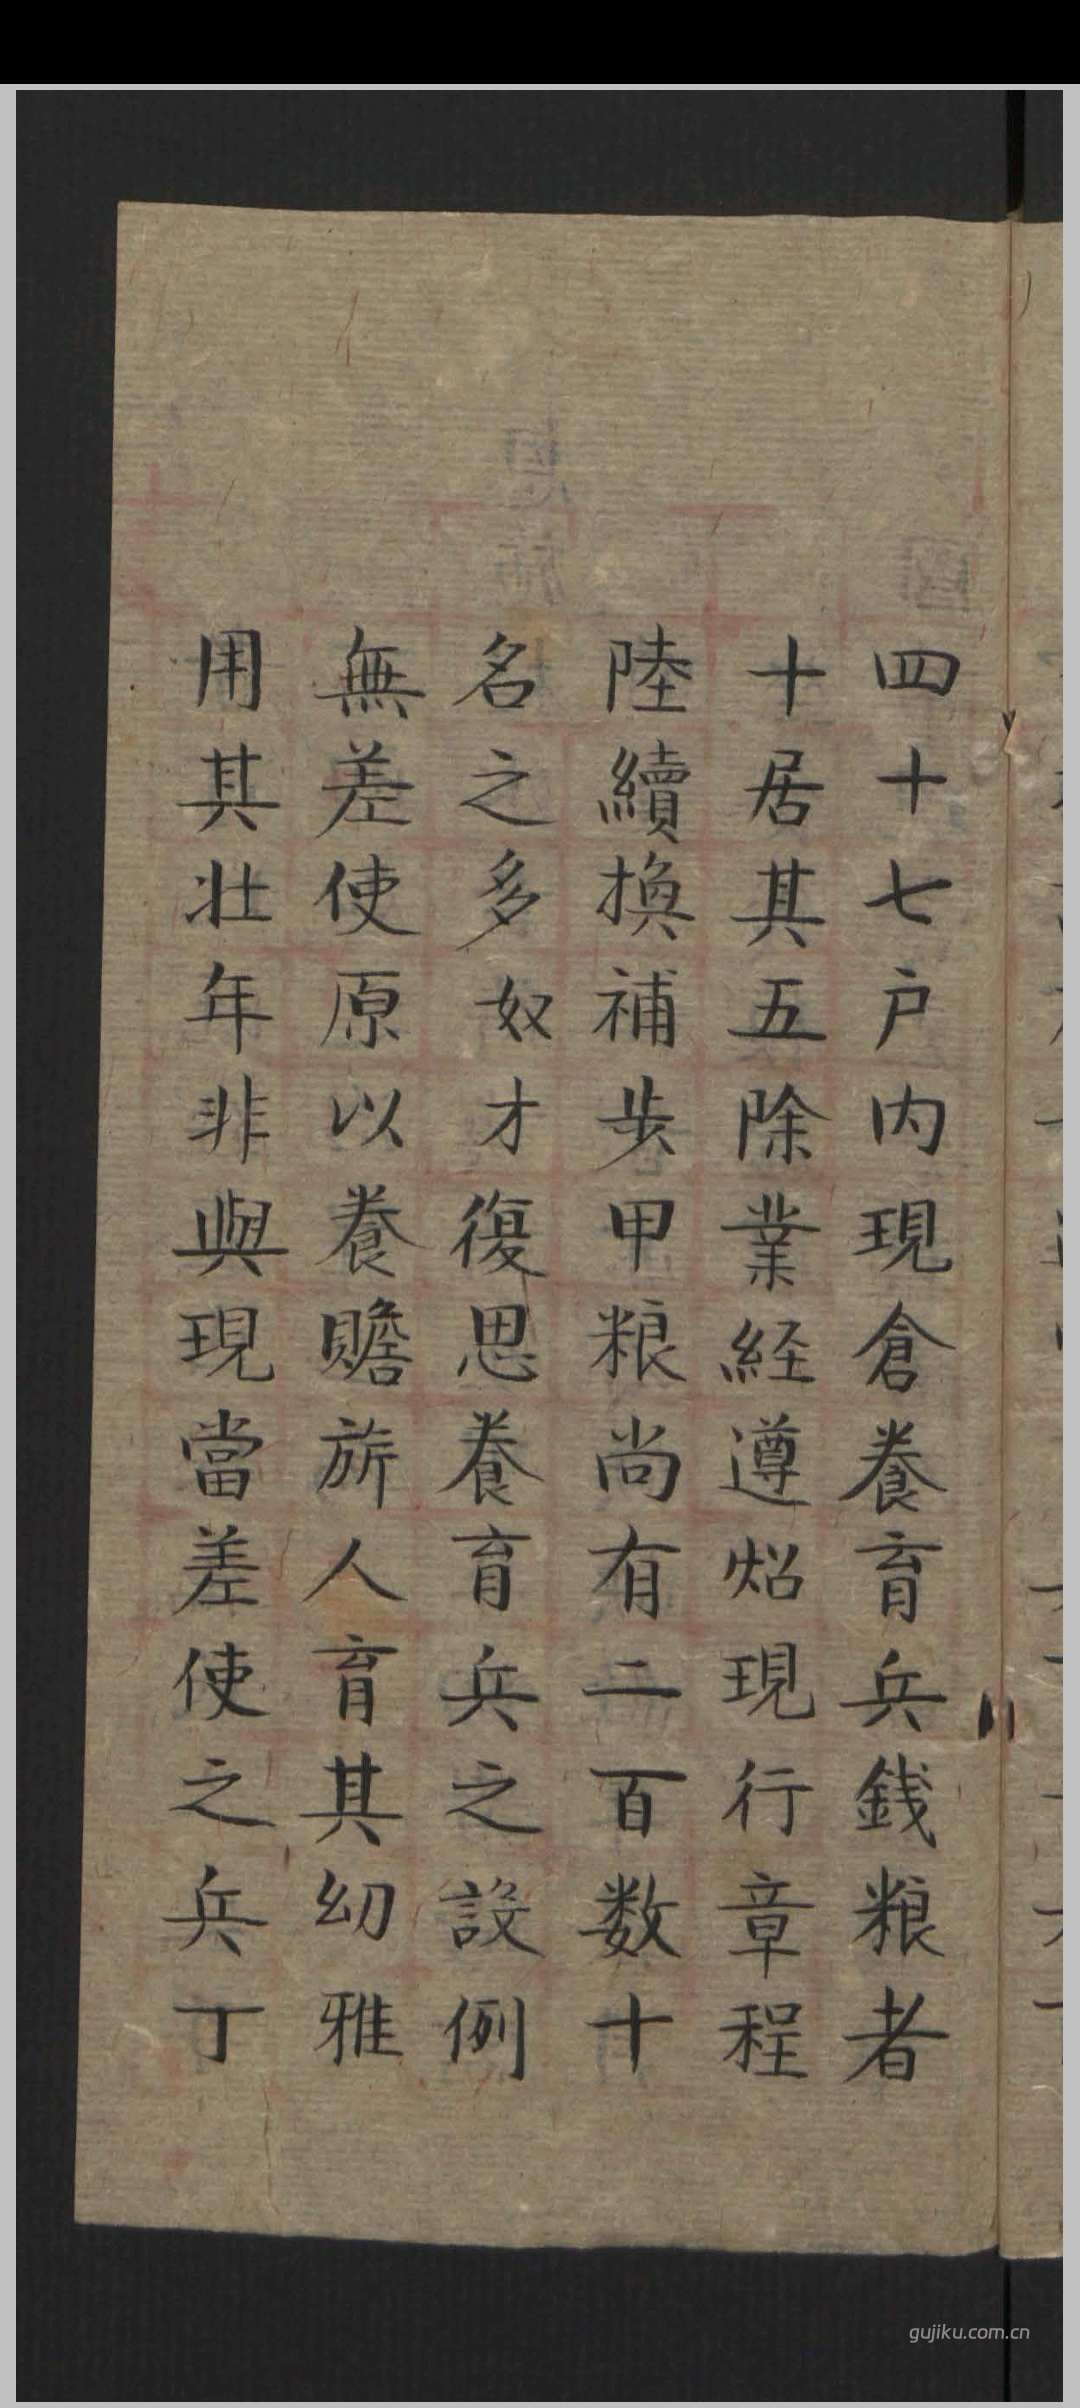 四十七户内現倉養育兵銭粮者
十居其五除業経遵炤現行章程
陸續換補步甲粮尚有二百数十
名之多奴才復思養育兵之設例
無差使原以養贍旂人育其幼雅
用其壯年非與現當差使之兵丁
gujiku.com.cn